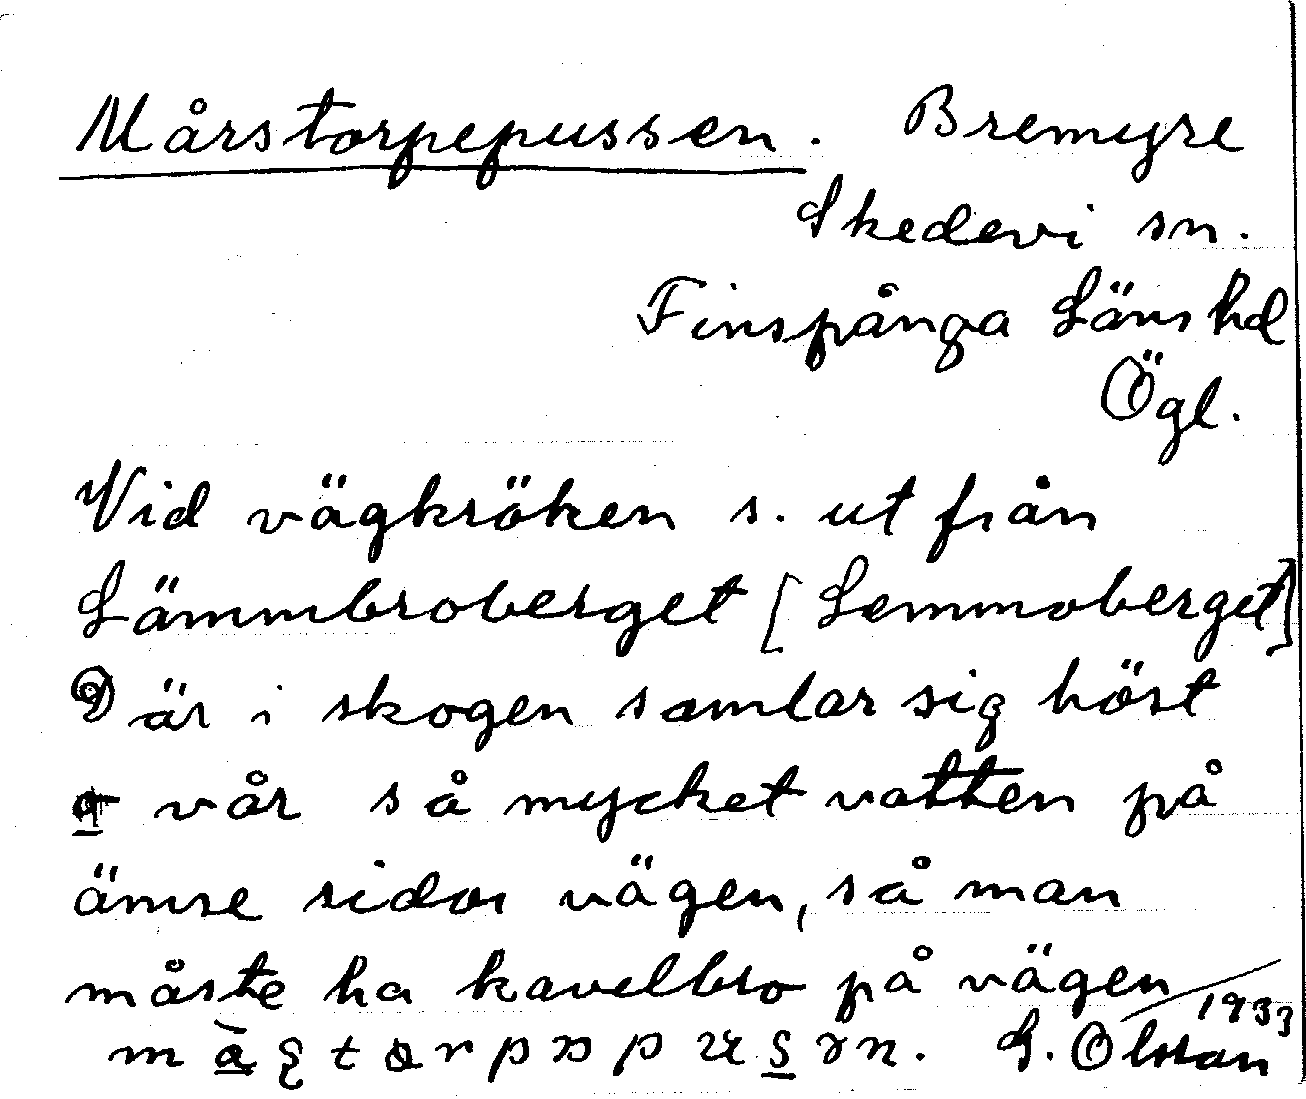 Mårstorpepussen. Bremyre
Skedevi sn.
Finspånga Läns hd
Ögl.
Vid vägkröken s. ut från
Lämmbroberget [Lemmoberget]
Där i skogen samlar sig höst
o vår så mycket vatten på
ämse sidor vägen, så man
måste ha kavelbro på vägen
1933
G. Olsson